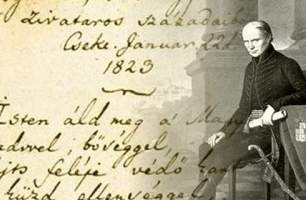 zivataros századaiból
Cseke, Januar. 22d.
1823
Isten áld meg a Mag
bőséggel,
feléje védő
küzd ellenséggel